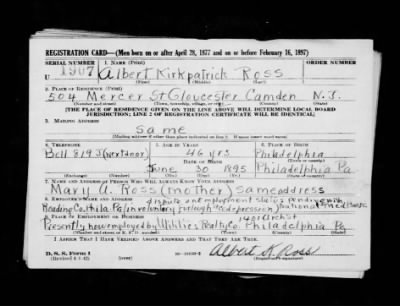 REGISTRATION CARD—(Men born on or after April 28, 1877 and on or before February 16, 1897)
SERIAL NUMBER 1. NAME (Print) ORDER NUMBER
U 1907 Albert Kirkpatrick Ross
(First) (Middle) (Last)
2. PLACE OF RESIDENCE (Print)
504 Mercer St Gloucester Camden N.J.
(Number and street) (Town, township, village, or city) (County) (State)
[THE PLACE OF RESIDENCE GIVEN ON THE LINE ABOVE WILL DETERMINE LOCAL BOARD
JURISDICTION; LINE 2 OF REGISTRATION CERTIFICATE WILL BE IDENTICAL]
3. MAILING ADDRESS
same
(Mailing address if other than place indicated on line 2. If same insert word same)
4. TELEPHONE 5. AGE IN YEARS 6. PLACE OF BIRTH
Bell 819J (next door) 46 yrs Philadelphia
DATE OF BIRTH
June 30 1895 Philadelphia Pa
7. NAME AND ADDRESS OF PERSON WHO WILL ALWAYS KNOW YOUR ADDRESS
Mary A. Ross (mother) Same address
8. EMPLOYER'S NAME AND ADDRESS dispute and employment status pending with
Reading Co. Phila. Pa (involuntary furlough
9. PLACE OF EMPLOYMENT OR BUSINESS
Presently now employed by Utilities Realty Co. Philadelphia Pa
I AFFIRM THAT I HAVE VERIFIED ABOVE ANSWERS AND THAT THEY ARE TRUE.
D. S. S. Form 1
(Revised 4-1-42)
Albert K. Ross